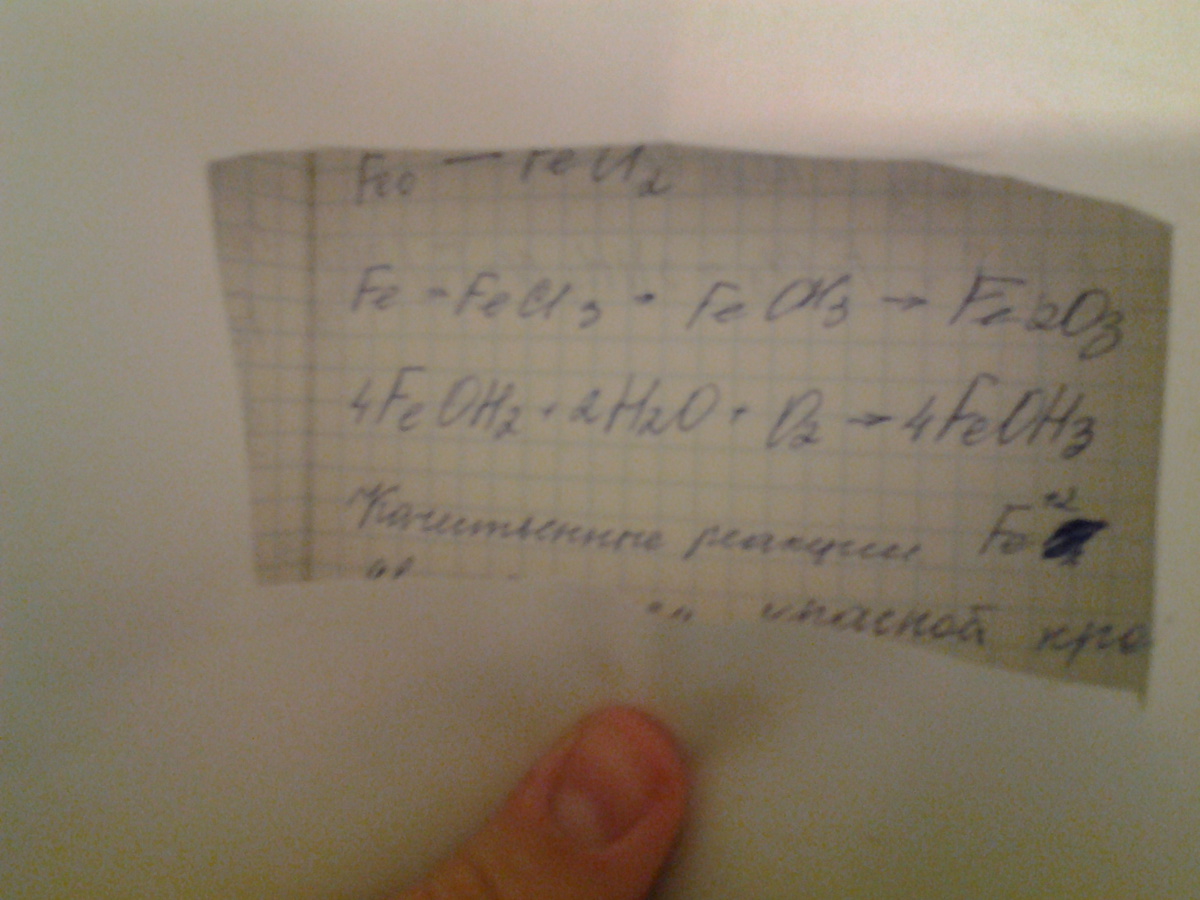 FeO — FeCl2
Fe - FeCl3 - FeOH3 → Fe2O3
4FeOH2 + 2H2O + O2 → 4FeOH3
Качественные реакции Fe+2
красной кро